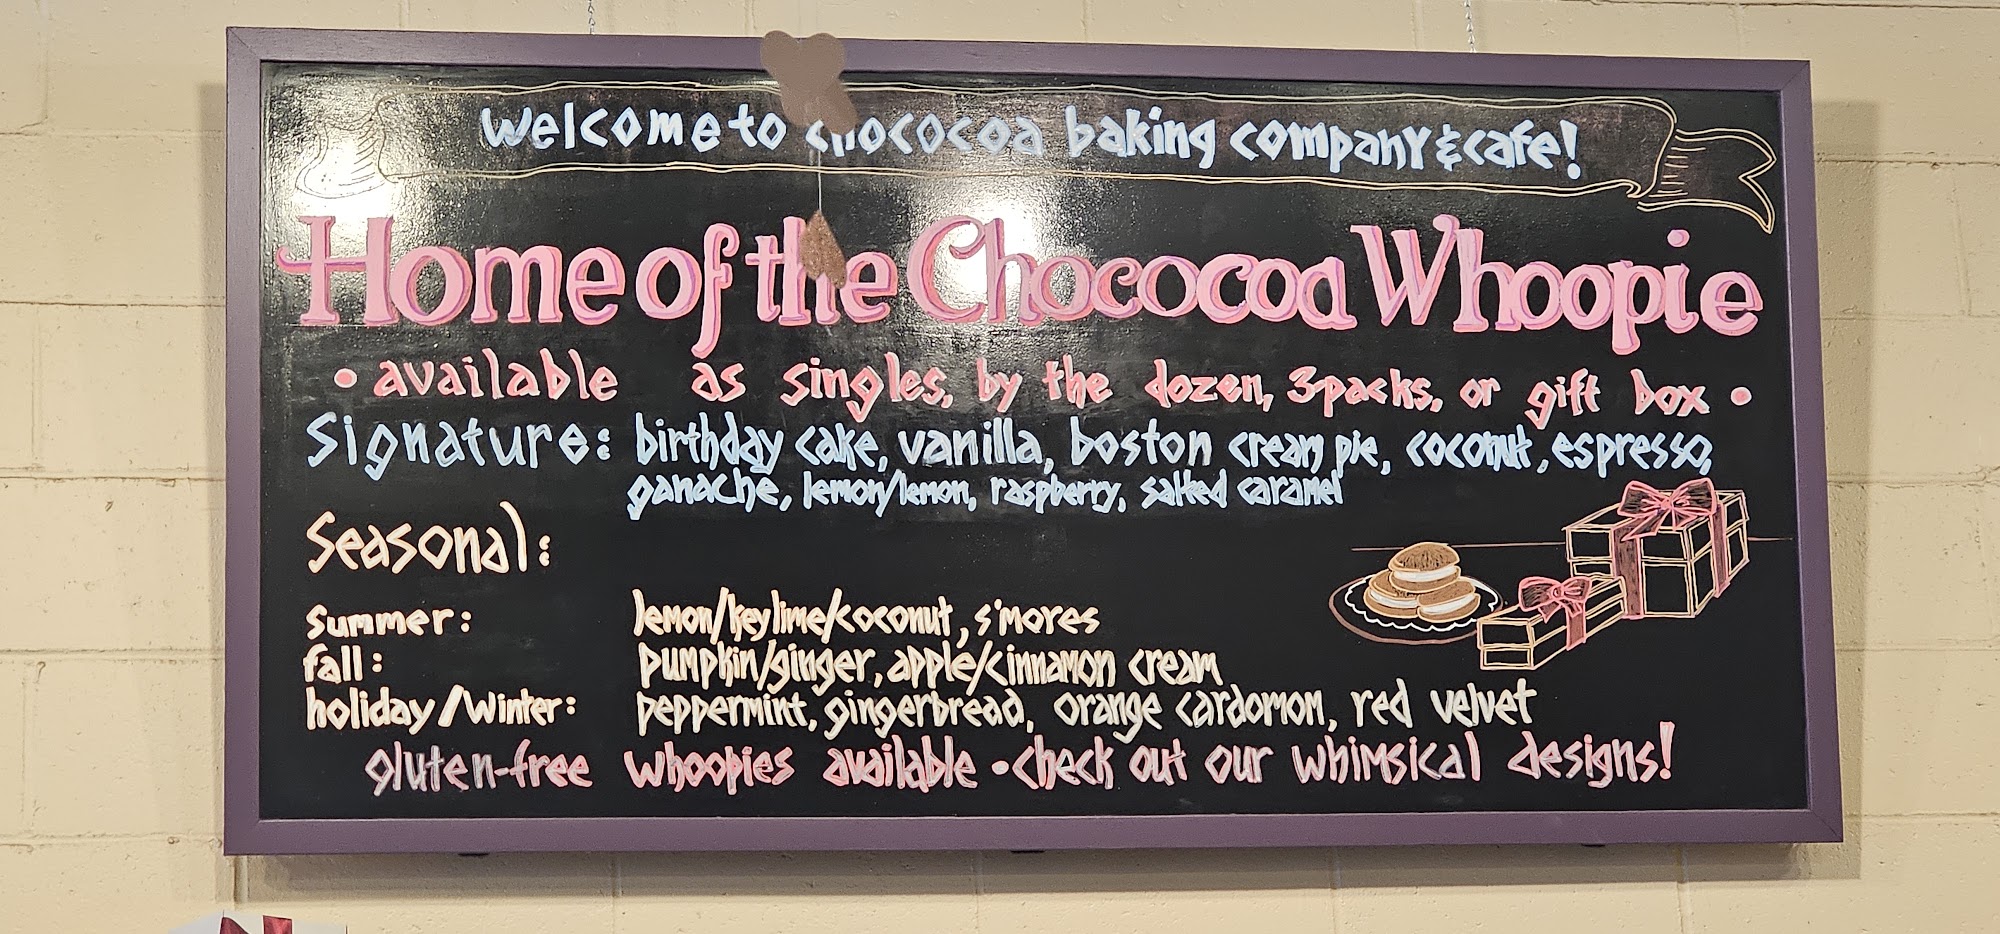 welcome to chococoa baking company & cafe!
Home of the Chococoa Whoopie
• available as singles, by the dozen, 3packs, or gift box •
Signature: birthday cake, vanilla, boston cream pie, coconut, espresso,
ganache, lemon/lemon, raspberry, salted caramel
Seasonal:
summer: lemon/keylime/coconut, s'mores
fall: pumpkin/ginger, apple/cinnamon cream
holiday/Winter: peppermint, gingerbread, orange cardomom, red velvet
gluten-free whoopies available • check out our whimsical designs!